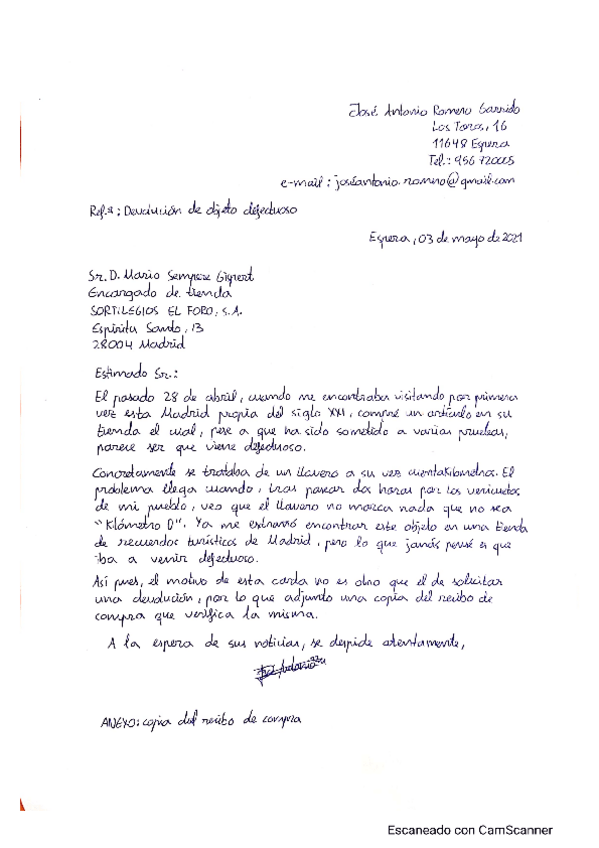 José Antonio Romero Garrido
Los Toros, 16
11648 Espera
Tel.: 956 72005
e-mail: joséantonio.romero@gmail.com
Ref.ª: Devolución de objeto defectuoso
Espera, 03 de mayo de 2021
Sr. D. Mario Sempere Gispert
Encargado de tienda
SORTILEGIOS EL FORO, S.A.
Espíritu Santo, 13
28004 Madrid
Estimado Sr.:
El pasado 28 de abril, cuando me encontraba visitando por primera
vez esta Madrid propia del siglo XXI, compré un artículo en su
tienda el cual, pese a que ha sido sometido a varias pruebas,
parece ser que viene defectuoso.
Concretamente se trataba de un llavero a su vez cuentakilómetros. El
problema llega cuando, tras pasear dos horas por los vericuetos
de mi pueblo, veo que el llavero no marca nada que no sea
"Kilómetro 0". Ya me extrañó encontrar este objeto en una tienda
de recuerdos turísticos de Madrid, pero lo que jamás pensé es que
iba a venir defectuoso.
Así pues, el motivo de esta carta no es otro que el de solicitar
una devolución, por lo que adjunto una copia del recibo de
compra que verifica la misma.
A la espera de sus noticias, se despide atentamente,
José Antonio
ANEXO: copia del recibo de compra
Escaneado con CamScanner